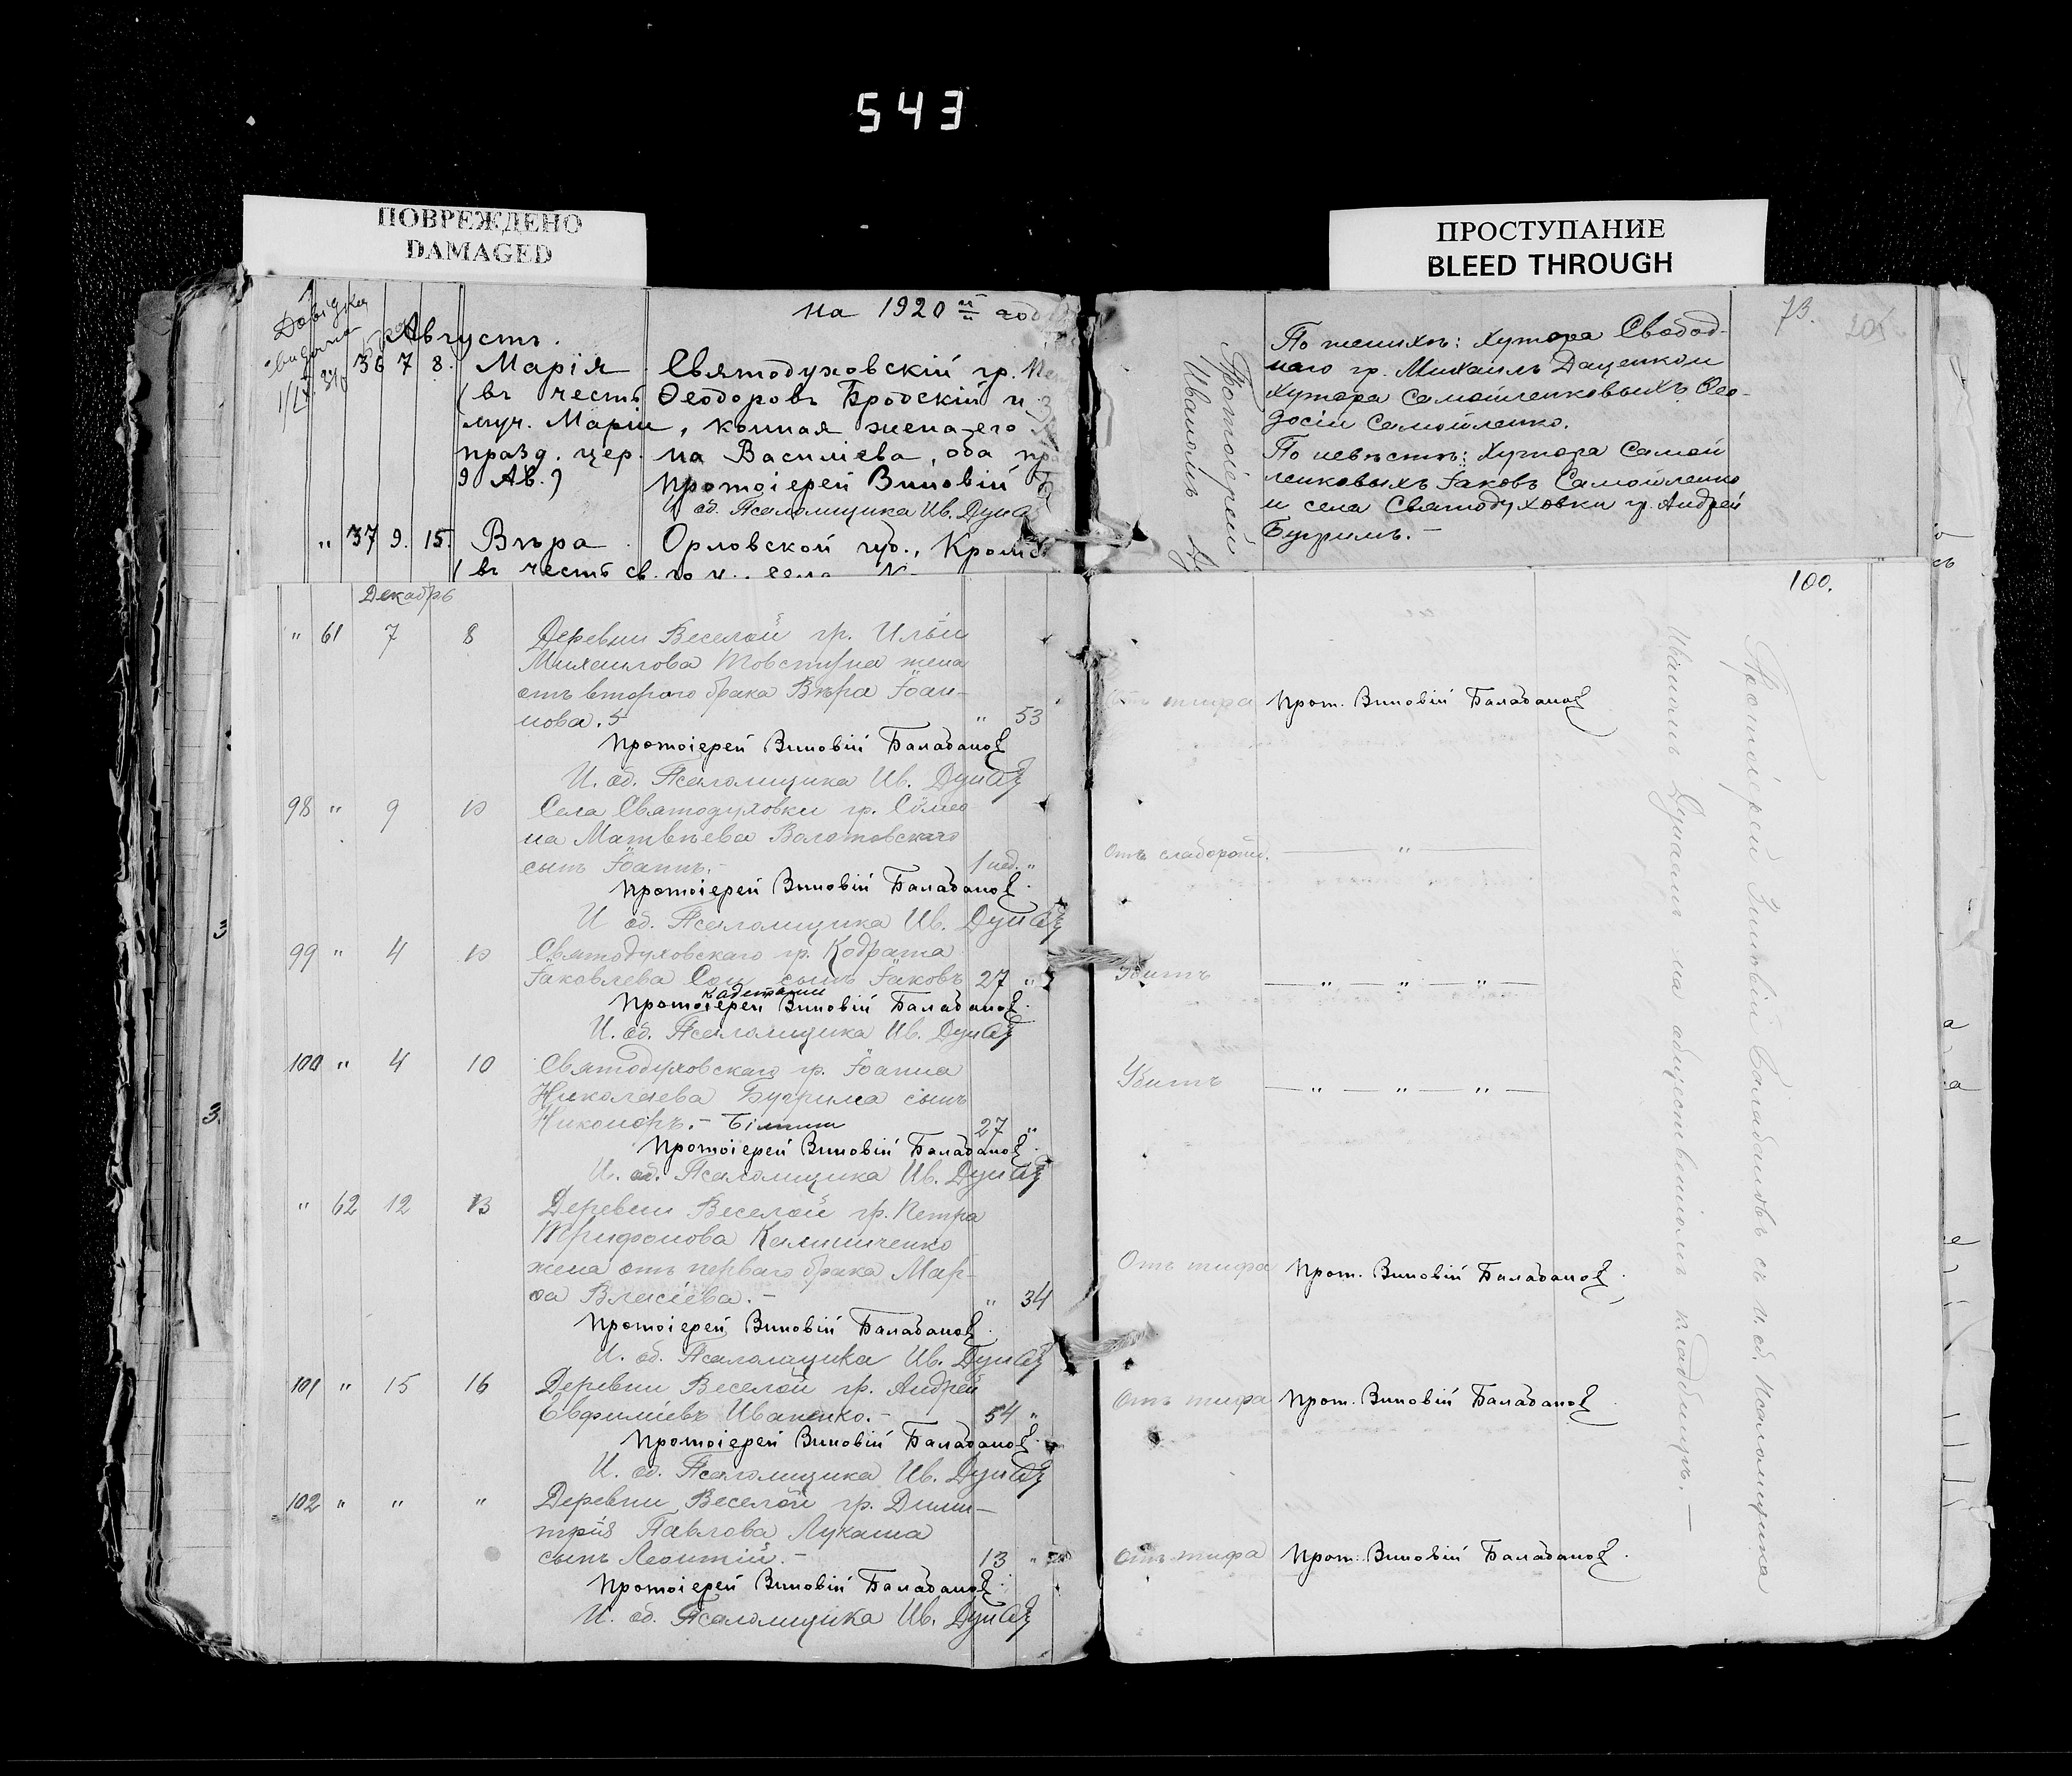 543
ПОВРЕЖДЕНО
DAMAGED
ПРОСТУПАНИЕ
BLEED THROUGH
на 1920 й год
Августъ.
36 7 8. Марія Святодуховскій гр.
(въ честь Ѳеодоровъ Бродскій и
муч. Маріи, законная жена его
празд. цер. на Василіева, оба пр
9 Ав.) Протоіерей Зиновій
И. об. Псаломщика Ив. Дунай
" 37 9. 15. Вѣра Орловской губ., Кромс
(въ честь св.
73.
По женихѣ: хутора Свобод-
наго гр. Михаилъ Даценко и
хутора Самойленковыхъ Ѳео-
досій Самойленко.
По невѣстѣ: хутора Самой
ленковыхъ Іаковъ Самойленко
и села Святодуховки гр. Андрей
Бугримъ.-
Протоіерей
Иваномъ
Декабрь
" 61 7 8 Деревни Веселой гр. Ильи
Михаилова Товстуна жена
отъ второго брака Вѣра Іоан-
нова. " 53
Протоіерей Зиновій Балабановъ
И. об. Псаломщика Ив. Дунай
98 " 9 10 Села Святодуховки гр. Симео
на Матвѣева Волотовскаго
сынъ Іоаннъ.- 1 нед. "
Протоіерей Зиновій Балабановъ
И. об. Псаломщика Ив. Дунай
99 " 4 10 Святодуховскаго гр. Кодрата
Іаковлева Сыч сынъ Іаковъ 27 "
кадетами
Протоіерей Зиновій Балабановъ
И. об. Псаломщика Ив. Дунай
100 " 4 10 Святодуховскаго гр. Іоанна
Николаева Бугрима сынъ
Никоноръ.- Білими 27 "
Протоіерей Зиновій Балабановъ
И. об. Псаломщика Ив. Дунай
" 62 12 13 Деревни Веселой гр. Петра
Трифонова Калиниченко
жена отъ перваго брака Мар-
ѳа Власіева.- " 34
Протоіерей Зиновій Балабановъ
И. об. Псаломщика Ив. Дунай
101 " 15 16 Деревни Веселой гр. Андрей
Евфиміевъ Иваненко.- 54 "
Протоіерей Зиновій Балабановъ
И. об. Псаломщика Ив. Дунай
102 " " " Деревни Веселой гр. Дими-
трія Павлова Лукаша
сынъ Леонтій.- 13 "
Протоіерей Зиновій Балабановъ
И. об. Псаломщика Ив. Дунай
100.
Отъ тифа Прот. Зиновій Балабановъ
Отъ слаборожд. "
Убитъ " " "
Убитъ " " "
Отъ тифа Прот. Зиновій Балабановъ
Отъ тифа Прот. Зиновій Балабановъ
Отъ тифа Прот. Зиновій Балабановъ
Протоіерей Зиновій Балабановъ съ и. об. Псаломщика
Иваномъ Дунаемъ на общественномъ кладбищѣ.-